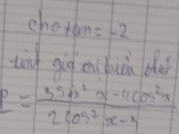 cho tan = -2
tính giá trị biểu thức
P = 3sin²x - 4cos²x
2cos²x -